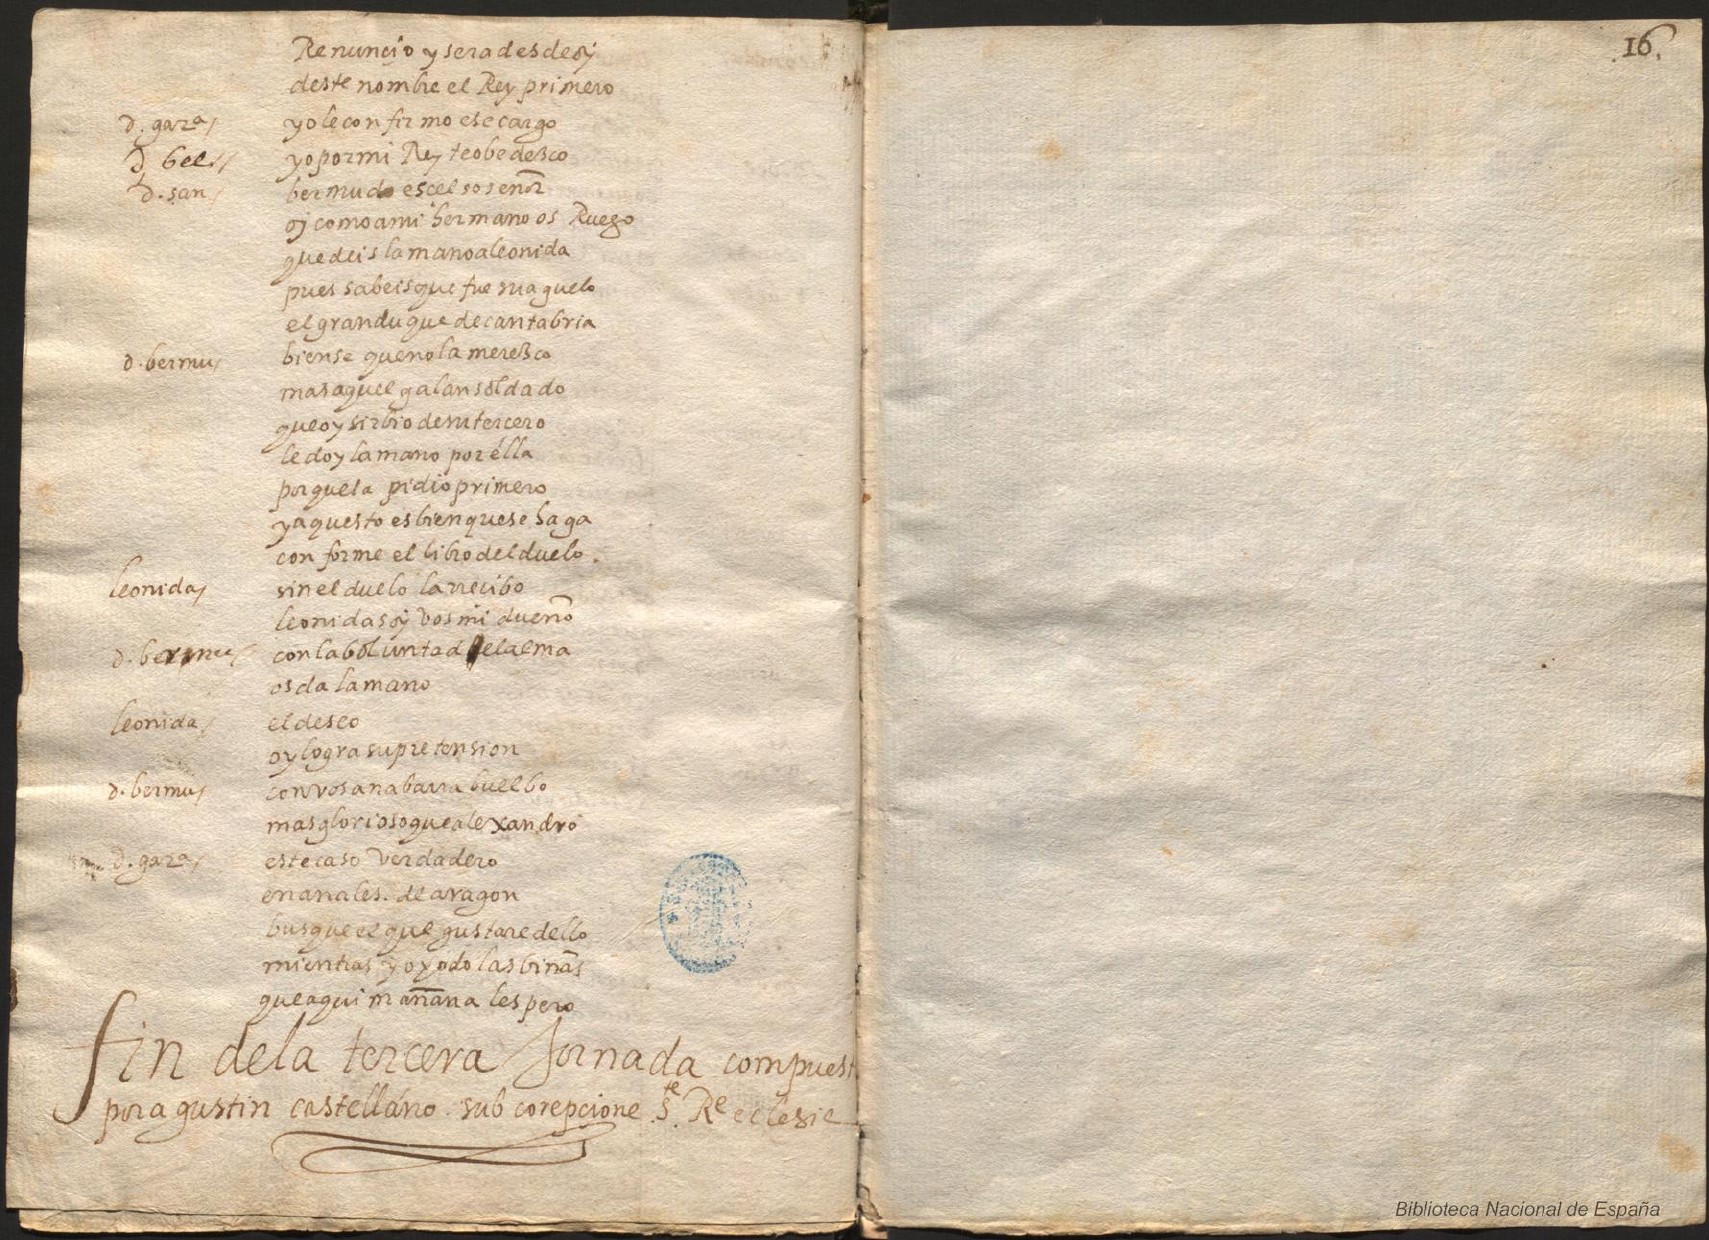 Renuncio y sera desde oy
deste nombre el Rey primero
d. garᵃ/ yo le confirmo ese cargo
d. bel./ yo por mi Rey te obedesco
d. san/ bermudo escelso señor
oy como a mi hermano os Ruego
que deis la mano a leonida
pues sabeis que fue su aguelo
el gran duque de cantabria
d. bermu/ bien se que no la meresco
mas aquel galan soldado
que oy sirbio de su tercero
le doy la mano por ella
porque la pidio primero
y aquesto es bien que se haga
conforme el libro del duelo.
leonida/ sin el duelo la rrecibo
leonida soy vos mi dueño
d. bermu/ con la boluntad del alma
os da la mano
leonida/ el deseo
oy logra su pretension
d. bermu/ con vos a nabarra buelbo
mas glorioso que alexandro
d. garᵃ/ este caso verdadero
en anales. de aragon
busque el que gustare dello
mientras yo y odo las biñas
que aqui mañana les pero
fin de la tercera Jornada compuest
por agustin castellano. sub corepcione Sᵗᵉ. Rᵉ eclesie
16.
Biblioteca Nacional de España